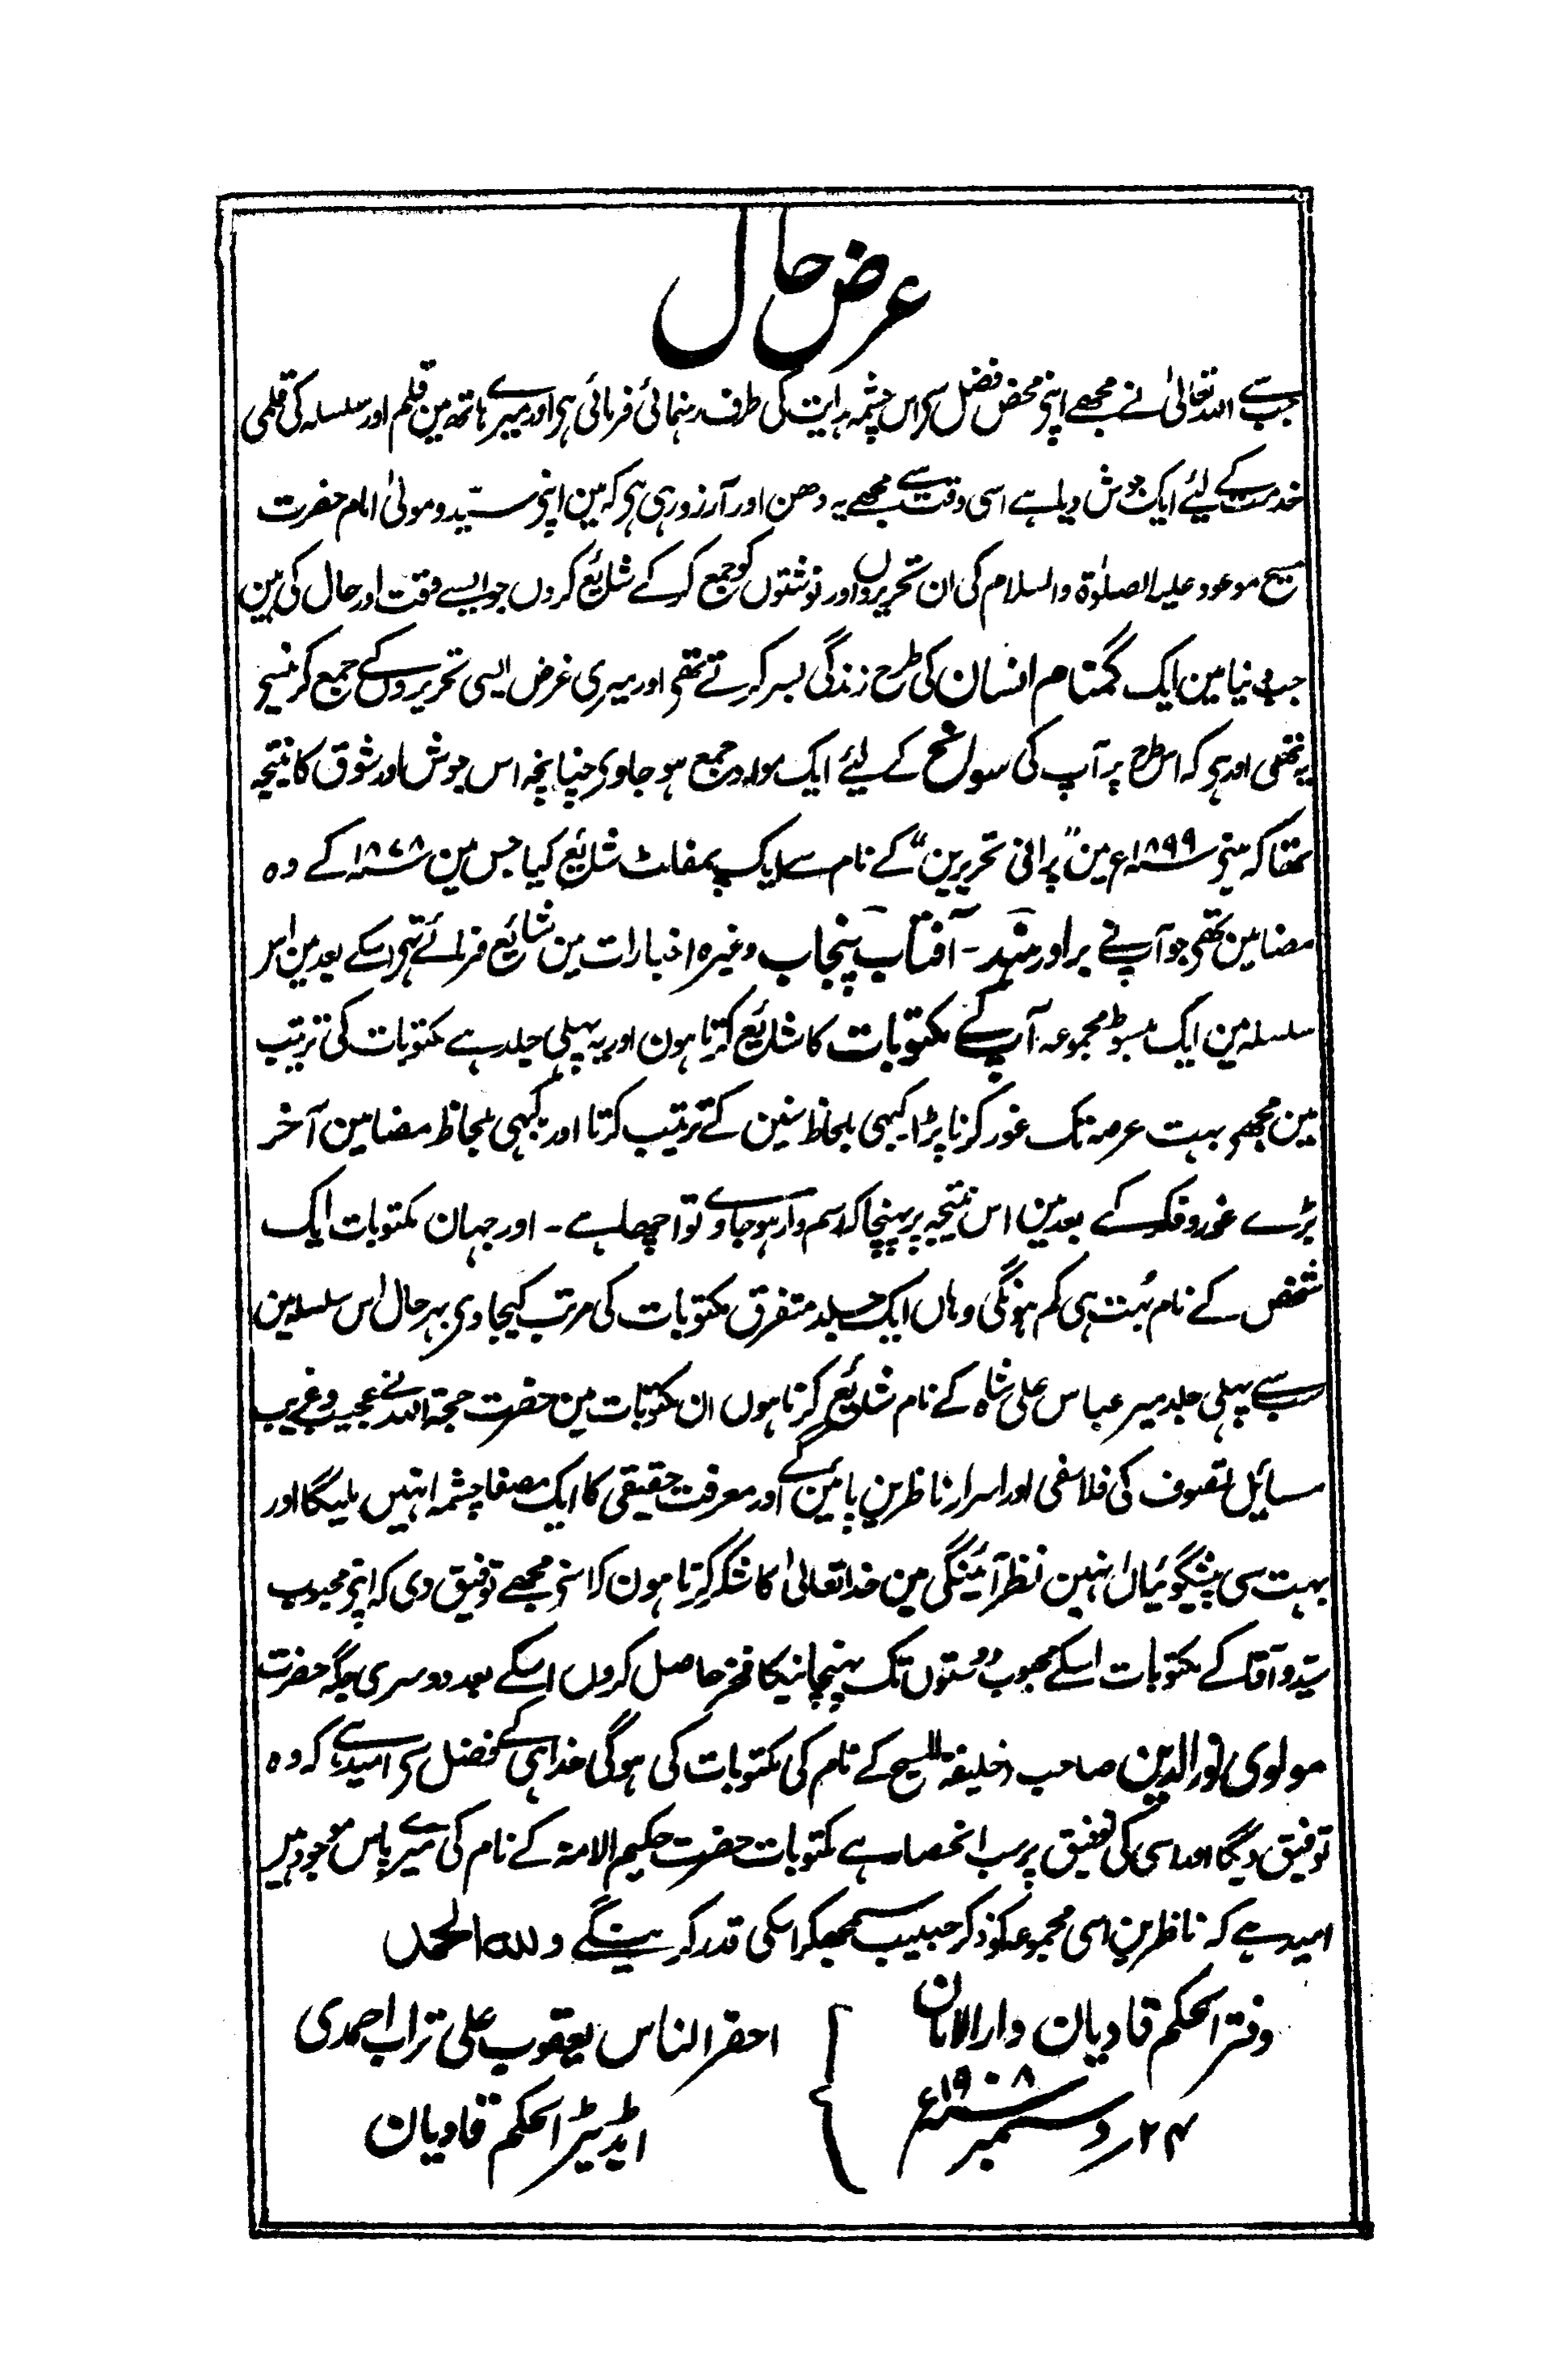 عرض حال
جب سے اللہ تعالیٰ نے مجھے اپنی محض فضل سے اس چشمہ ہدایت کی طرف رہنمائی فرمائی ہے اور میرے ہاتھ مین قلم اور سلسلہ کی قلمی
خدمت کے لئے ایک جوش دیا ہے اسی وقت سے مجھے یہ دھن اور آرزو رہی ہے کہ مین اپنی سیّد و مولیٰ امام حضرت
مسیح موعود علیہ الصلوٰۃ والسلام کی ان تحریروں اور نوشتوں کو جمع کر کے شائع کروں جو ایسے وقت اور حال کی ہین
جب دنیا مین ایک گمنام انسان کی طرح زندگی بسر کرتے تھے اور میری غرض ایسی تحریروں کے جمع کرنیسے
یہ تھی اور ہے کہ اس طرح پر آپ کی سوانح کے لئے ایک مواد جمع ہو جاوے چنانچہ اس جوش اور شوق کا نتیجہ
تھا کہ مینے ۱۸۹۹ء مین ”پرانی تحریرین“ کے نام سے ایک پمفلٹ شائع کیا جس مین ۱۸۷۸ کے وہ
مضامین تھے جو آپ نے برادر ہند - آفتاب پنجاب وغیرہ اخبارات مین شائع فرمائے تھے اسکے بعد مین اس
سلسلہ مین ایک مبسوط مجموعہ آپ کے مکتوبات کا شائع کرتا ہون اور یہ پہلی جلد ہے مکتوبات کی ترتیب
مین مجھے بہت عرصہ تک غور کرنا پڑا کبھی بلحاظ سنین کے ترتیب کرتا اور کبھی بلحاظ مضامین آخر
بڑے غور و فکر کے بعد مین اس نتیجہ پر پہنچا کہ اسم وار ہو جاوے تو اچھا ہے - اور جہان مکتوبات ایک
شخص کے نام بُہت ہی کم ہونگی وہاں ایک جلد متفرق مکتوبات کی مرتب کیجاوے بہر حال اس سلسلہ مین
سب سے پہلی جلد میر عباس علی شاہ کے نام شائع کرتا ہوں ان مکتوبات مین حضرت حجۃ اللہ نے عجیب و غریب
مسایل تصوف کی فلاسفی اور اسرار ناظرین پائین گے اور معرفت حقیقی کا ایک مصفا چشمہ انہیں ملیگا اور
بہت سی پیشگوئیاں انہین نظر آئینگی مین خدا تعالیٰ کا شکر کرتا ہون کہ اسنے مجھے توفیق دی کہ اپنے محبوب
سیّد و آقا کے مکتوبات اسکے محبوب دوستوں تک پہنچانیکا فخر حاصل کروں اسکے بعد دوسری جگہ حضرت
مولوی نور الدین صاحب خلیفۃ المسیح کے نام کی مکتوبات کی ہوگی خدا ہی کے فضل سے امید ہے کہ وہ
توفیق دیگا اور اسی کی توفیق پر سب انحصار ہے مکتوبات حضرت حکیم الامۃ کے نام کی میرے پاس موجود ہیں
امید ہے کہ ناظرین اسی مجموعہ کو ذکر حبیب سمجھکر اسکی قدر کرینگے وللہ الحمد
دفتر الحکم قادیان دارالامان
۲۴ دسمبر ۱۹۰۸ء
احقر الناس یعقوب علی تراب احمدی
ایڈیٹر الحکم قادیان